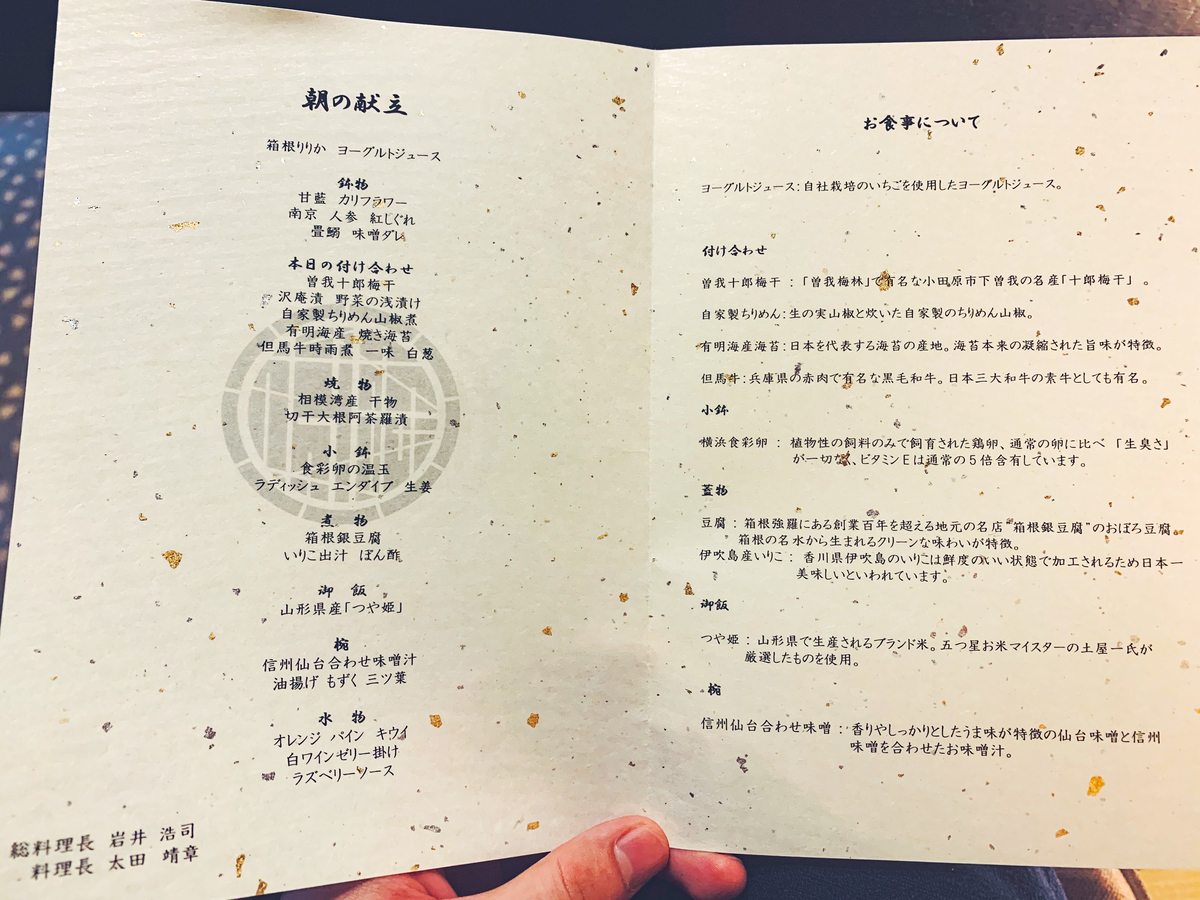 朝の献立
箱根りりか ヨーグルトジュース
鉢物
甘藍 カリフラワー
南京 人参 紅しぐれ
畳鰯 味噌ダレ
本日の付け合わせ
曽我十郎梅干
沢庵漬 野菜の浅漬け
自家製ちりめん山椒煮
有明海産 焼き海苔
但馬牛時雨煮 一味 白葱
焼 物
相模湾産 干物
切干大根阿茶羅漬
小 鉢
食彩卵の温玉
ラディッシュ エンダイブ 生姜
煮 物
箱根銀豆腐
いりこ出汁 ぽん酢
御 飯
山形県産「つや姫」
椀
信州仙台合わせ味噌汁
油揚げ もずく 三ツ葉
水 物
オレンジ パイン キウイ
白ワインゼリー掛け
ラズベリーソース
総料理長 岩井 浩司
料理長 太田 靖章
お食事について
ヨーグルトジュース：自社栽培のいちごを使用したヨーグルトジュース。
付け合わせ
曽我十郎梅干 ： 「曽我梅林」で有名な小田原市下曽我の名産「十郎梅干」 。
自家製ちりめん：生の実山椒と炊いた自家製のちりめん山椒。
有明海産海苔：日本を代表する海苔の産地。海苔本来の凝縮された旨味が特徴。
但馬牛：兵庫県の赤肉で有名な黒毛和牛。日本三大和牛の素牛としても有名。
小鉢
横浜食彩卵 ： 植物性の飼料のみで飼育された鶏卵、通常の卵に比べ 「生臭さ」
が一切なく、ビタミンEは通常の5倍含有しています。
蓋物
豆腐 ： 箱根強羅にある創業百年を超える地元の名店“箱根銀豆腐”のおぼろ豆腐。
箱根の名水から生まれるクリーンな味わいが特徴。
伊吹島産いりこ ： 香川県伊吹島のいりこは鮮度のいい状態で加工されるため日本一
美味しいといわれています。
御飯
つや姫 ： 山形県で生産されるブランド米。五つ星お米マイスターの土屋一氏が
厳選したものを使用。
椀
信州仙台合わせ味噌 ： 香りやしっかりとしたうま味が特徴の仙台味噌と信州
味噌を合わせたお味噌汁。